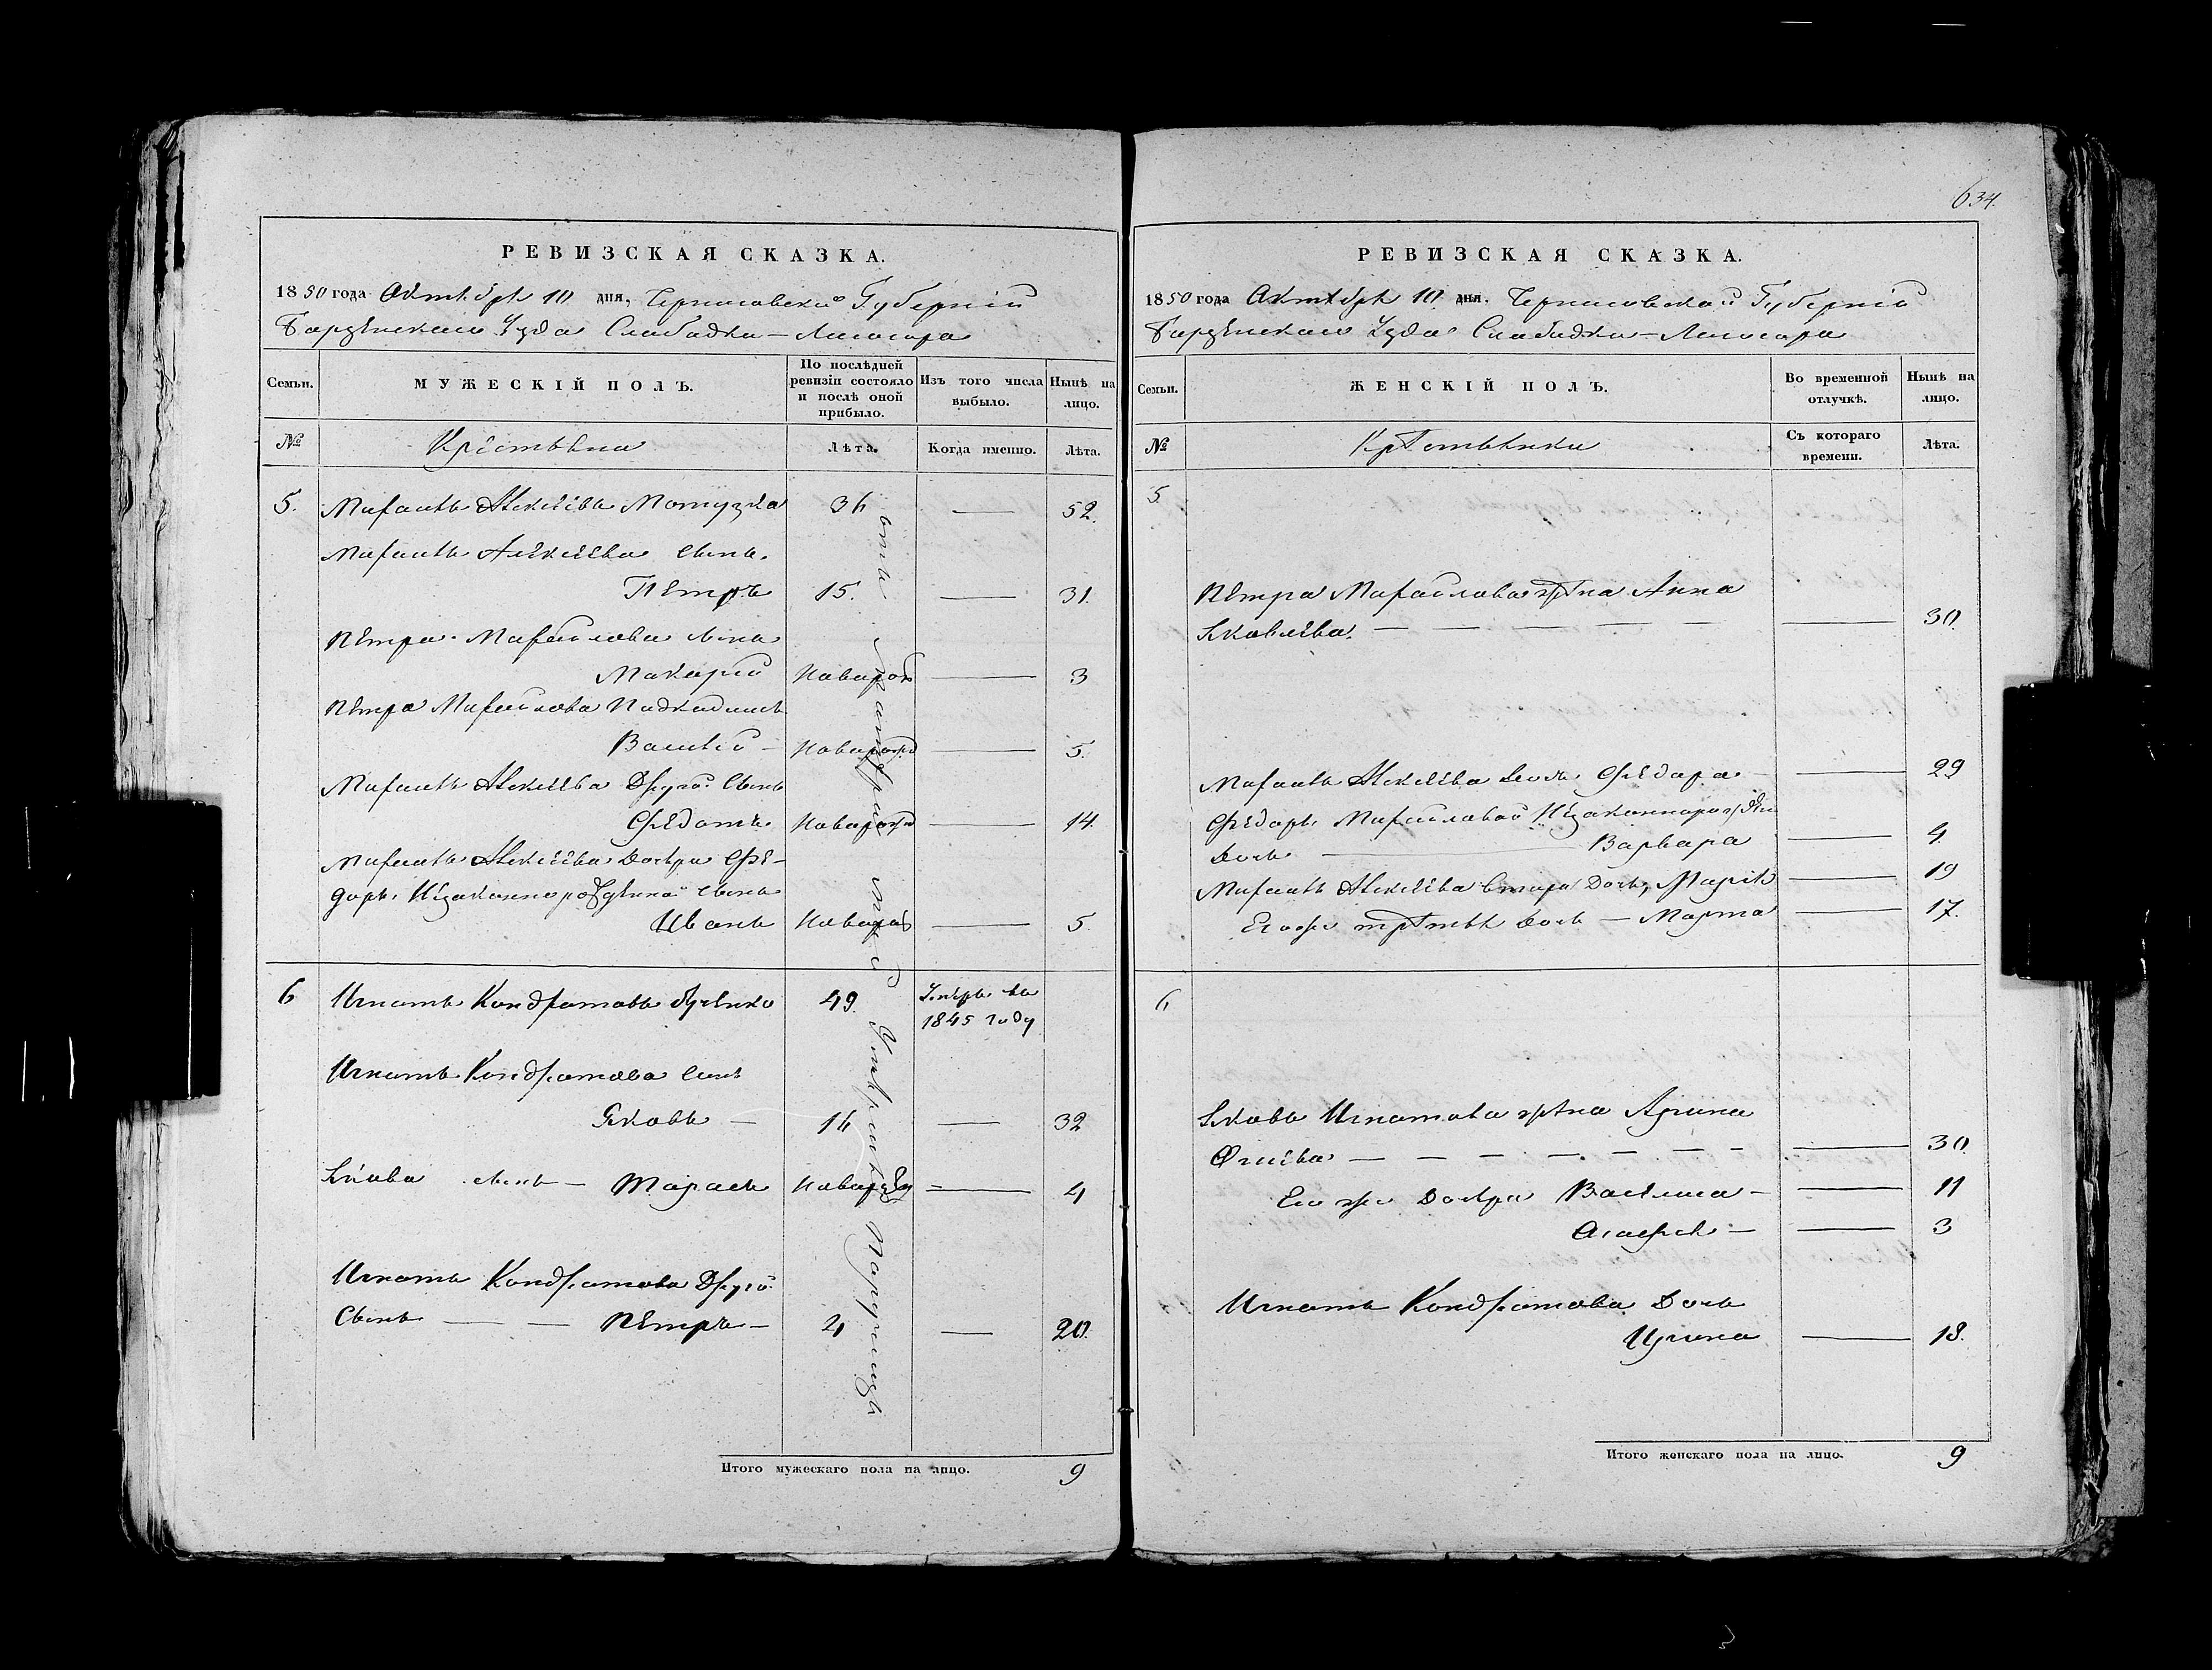 634.
РЕВИЗСКАЯ СКАЗКА.
1850 года Октября 10 дня, Черниговской Губерніи
Борзенскаго Уезда Слабодки — Лисогора
Семьи.
МУЖЕСКІЙ ПОЛЪ.
По послѣдней ревизіи состояло и послѣ оной прибыло.
Изъ того числа выбыло.
Нынѣ на лицо.
№
Крестьяне
Лѣта.
Когда именно.
Лѣта.
5. Михаилъ Алексѣевъ Мотузка 36 — 52.
Михаила Алексѣева сынъ.
Петръ 15. — 31.
Петра Михайлова сынъ
Макарій Новорож — 3
Петра Михайлова Подкидышъ
Василій — Новорожд — 5.
Михаила Алексѣева Другой Сынъ
Федотъ Новорожд — 14.
Михаила Алексѣева Дочери Фе-
доры Незаконнорожденной сынъ
Иванъ Новорож — 5
6 Игнатъ Кондратовъ 49. Умеръ въ
1845 году
Игната Кондратова сынъ
Яковъ — 16 — 32
Якова сынъ — Тарасъ Новорожден — 4
Игната Кондратова Другой
Сынъ — — Петръ — 4 — 20.
Итого мужескаго пола на лицо. 9
РЕВИЗСКАЯ СКАЗКА.
1850 года Октября 10 дня. Черниговской Губерніи
Борзенскаго Уезда Слабодки — Лисогора
Семьи.
ЖЕНСКІЙ ПОЛЪ.
Во временной отлучкѣ.
Нынѣ на лицо.
№
Крестьянки
Съ котораго времени.
Лѣта.
5
Петра Михайлова жена Анна
Яковлева. — — — — — — 30.
Михаила Алексѣева дочь Федора — — 29
Федоры Михайловой Незаконнорожден
Дочь — Варвара — 4
Михаила Алексѣева втора Дочь, Марія — 19
Его же третья Дочь — Марта — 17.
6
Якова Игнатова жена Арина
— — — — — — — 30
Его же Дочери Василиса — — 11
Агафія — — 3
Игната Кондратова Дочь
Ирина — 18.
Итого женскаго пола на лицо. 9